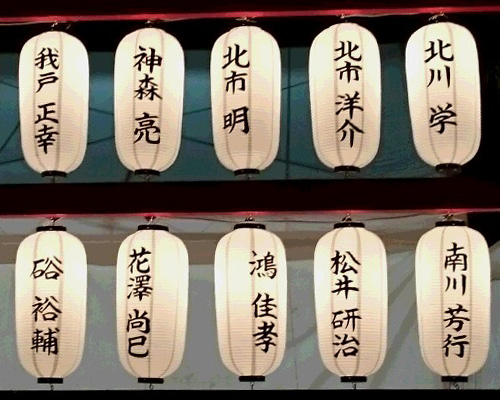 我戸 正幸
神森 亮
北市 明
北市 洋介
北川 学
硲 裕輔
花澤 尚巳
鴻 佳孝
松井 研治
南川 芳行